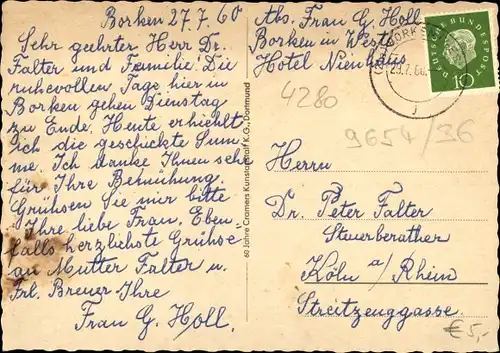 Borken 27.7.60
Sehr geehrter Herr Dr.
Falter und Familie. Die
ruhevollen Tage hier in
Borken gehen Dienstag
zu Ende. Heute erhielt
ich die geschickte Sum-
me. Ich danke Ihnen sehr
für Ihre Bemühung.
Grühsen Sie mir bitte
Ihre liebe Frau. Eben
falls herzlichste Grühse
an Mutter Falter u.
Frl. Breuer Ihre
Frau G. Holl.
60 Jahre Cramers Kunstanstalt K.G., Dortmund
Abs. Frau G. Holl
Borken in Westf
Hotel Nienhaus
DEUTSCHE BUNDESPOST
10
4280
9654/36
Herrn
Dr. Peter Falter
Steuerberather
Köln a/Rhein
Streitzeuggasse.
€5,-